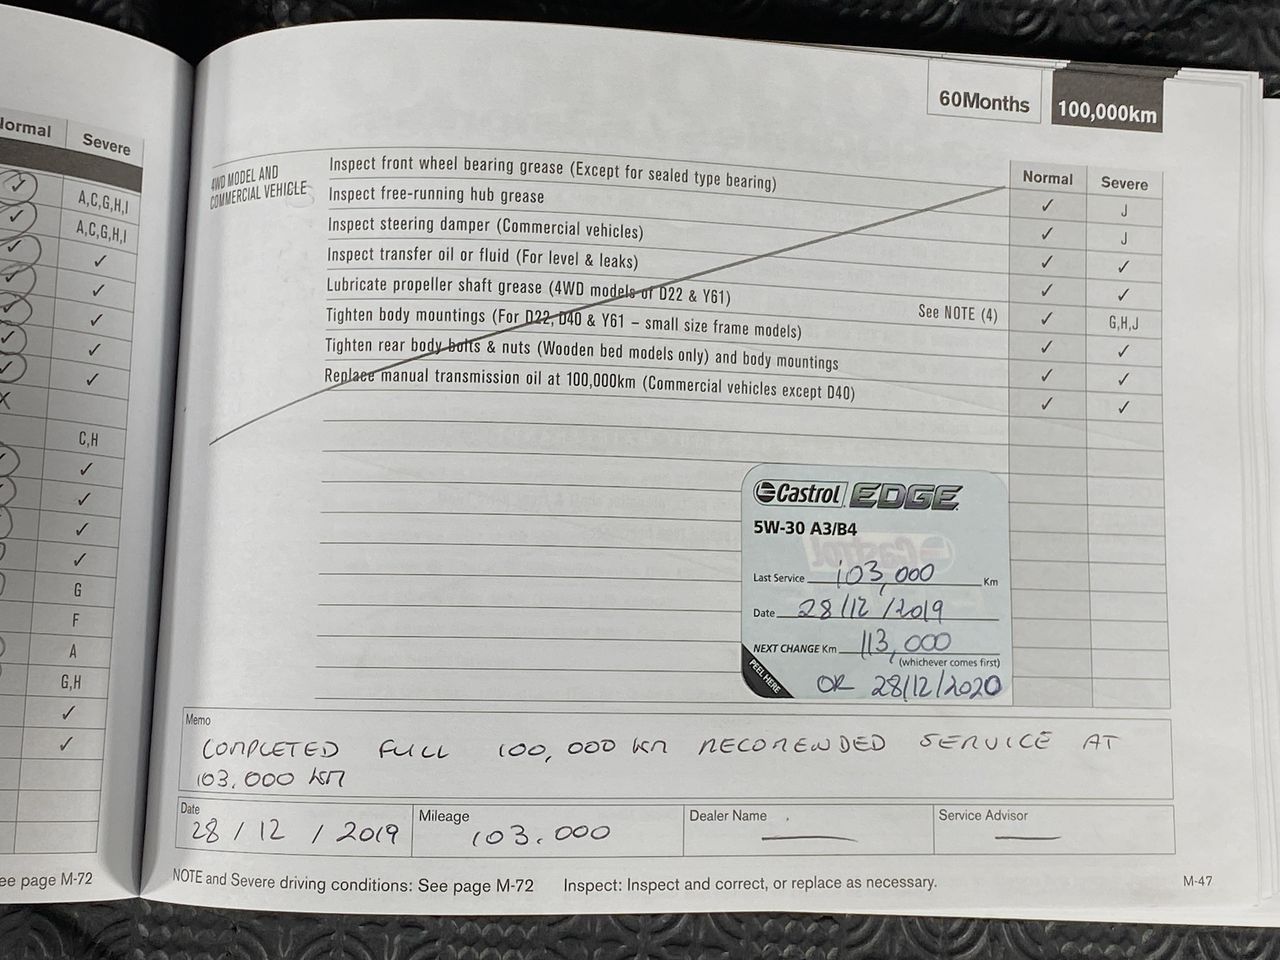 Normal Severe
✓ A,C,G,H,I
✓ A,C,G,H,I
✓ ✓
✓ ✓
✓ ✓
✓ ✓
✓ ✓
X
C,H
✓
✓
✓
✓
G
F
A
G,H
✓
✓
ee page M-72
60Months 100,000km
4WD MODEL AND
COMMERCIAL VEHICLE
Normal Severe
Inspect front wheel bearing grease (Except for sealed type bearing) ✓ J
Inspect free-running hub grease ✓ J
Inspect steering damper (Commercial vehicles) ✓ ✓
Inspect transfer oil or fluid (For level & leaks) ✓ ✓
Lubricate propeller shaft grease (4WD models of D22 & Y61) See NOTE (4) ✓ G,H,J
Tighten body mountings (For D22, D40 & Y61 – small size frame models) ✓ ✓
Tighten rear body bolts & nuts (Wooden bed models only) and body mountings ✓ ✓
Replace manual transmission oil at 100,000km (Commercial vehicles except D40) ✓ ✓
Castrol EDGE
5W-30 A3/B4
Last Service 103,000 Km
Date 28/12/2019
NEXT CHANGE Km 113,000
(whichever comes first)
PEEL HERE
OR 28/12/2020
Memo
COMPLETED FULL 100,000 KM RECOMENDED SERVICE AT
103.000 KM
Date 28/12/2019
Mileage 103.000
Dealer Name
Service Advisor
NOTE and Severe driving conditions: See page M-72 Inspect: Inspect and correct, or replace as necessary.
M-47